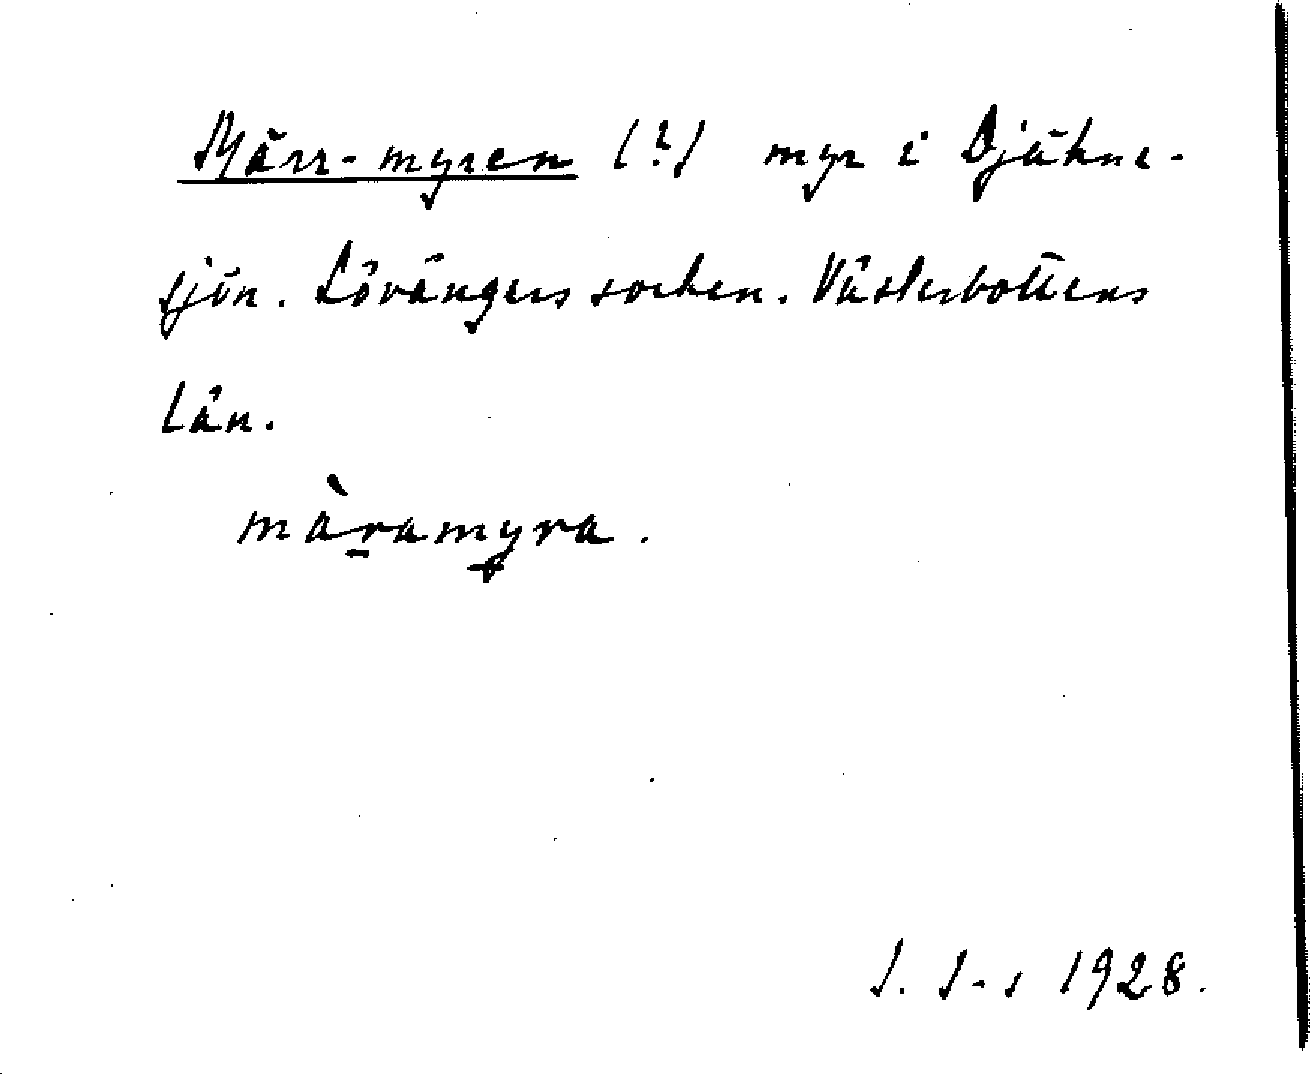 Märr-myren (?) myr i Djäkne-
sjön. Lövångers socken. Västerbottens
län.
màramyra.
J. J-s 1928.